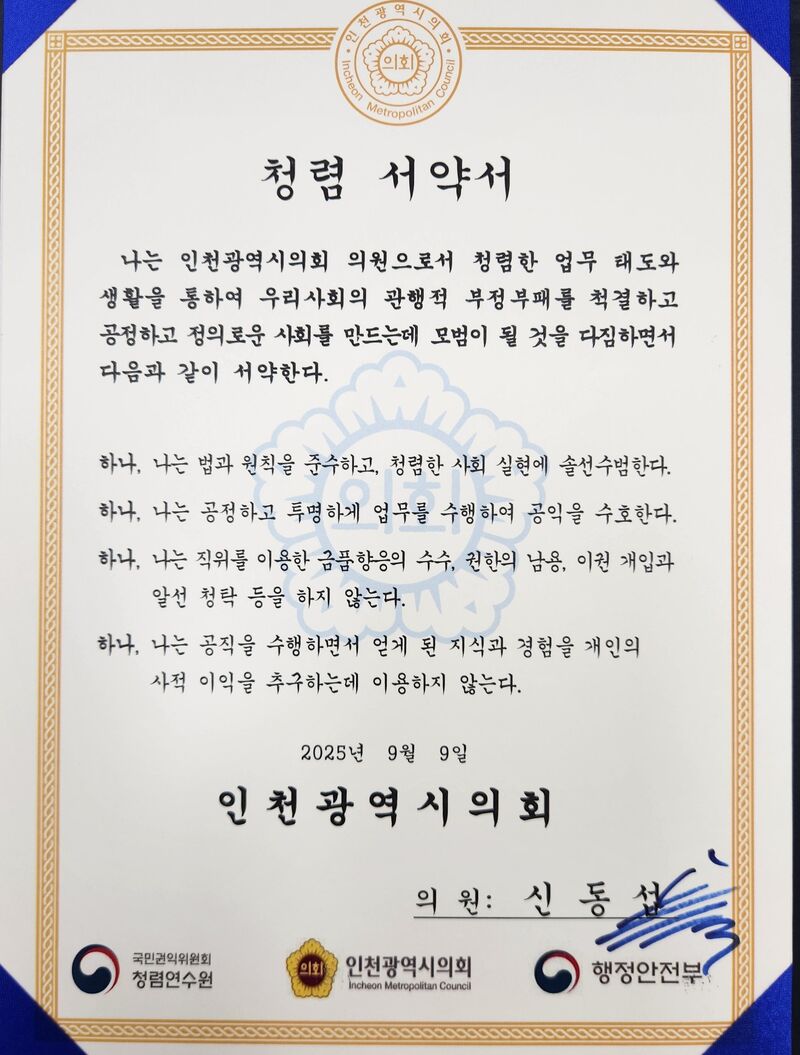 인천광역시의회
의회
Incheon Metropolitan Council
청렴 서약서
나는 인천광역시의회 의원으로서 청렴한 업무 태도와
생활을 통하여 우리사회의 관행적 부정부패를 척결하고
공정하고 정의로운 사회를 만드는데 모범이 될 것을 다짐하면서
다음과 같이 서약한다.
의회
하나, 나는 법과 원칙을 준수하고, 청렴한 사회 실현에 솔선수범한다.
하나, 나는 공정하고 투명하게 업무를 수행하여 공익을 수호한다.
하나, 나는 직위를 이용한 금품향응의 수수, 권한의 남용, 이권 개입과
알선 청탁 등을 하지 않는다.
하나, 나는 공직을 수행하면서 얻게 된 지식과 경험을 개인의
사적 이익을 추구하는데 이용하지 않는다.
2025년 9월 9일
인천광역시의회
의 원: 신 동 섭
국민권익위원회
청렴연수원
의회
인천광역시의회
Incheon Metropolitan Council
행정안전부